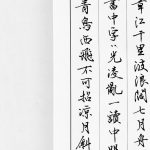 章江千里波浪闊七月舟
書中字字光凌亂一讀中
青鳥西飛不可招涼月斜